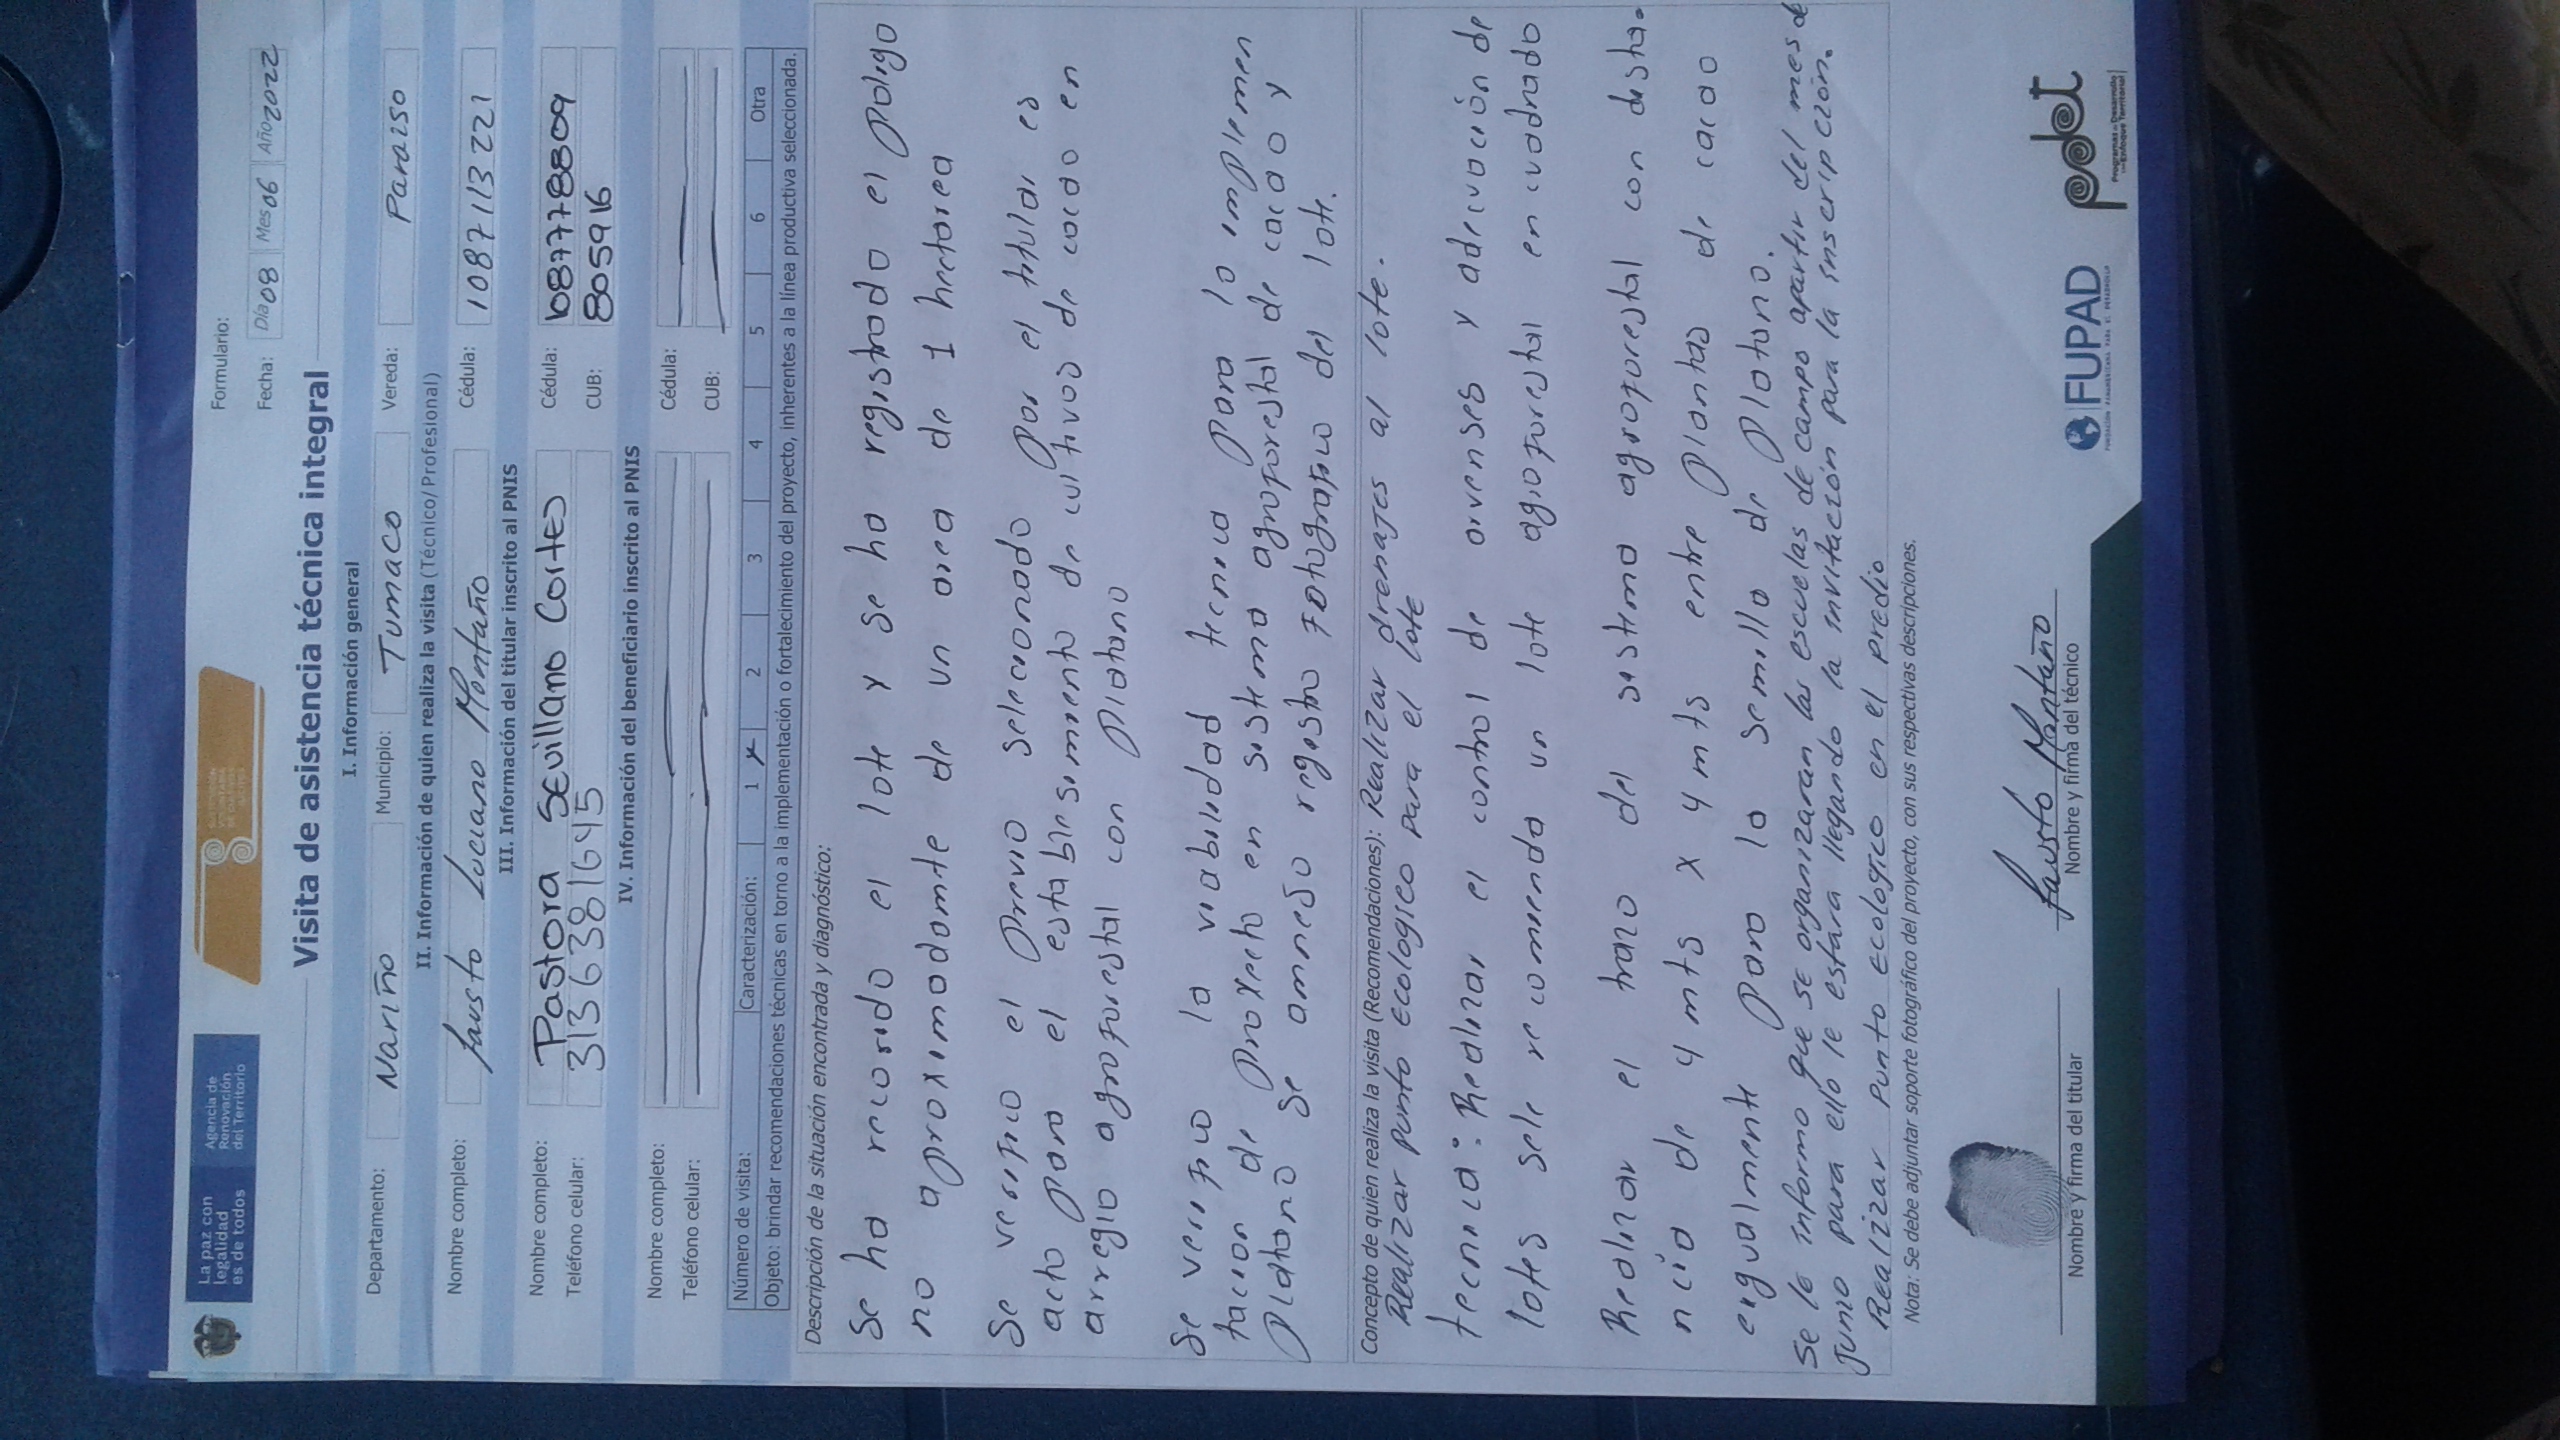 La paz con
legalidad
es de todos
Agencia de
Renovación
del Territorio
Formulario:
Fecha: Día 08 Mes 06 Año 2022
Visita de asistencia técnica integral
I. Información general
Departamento: Nariño Municipio: Tumaco Vereda: Paraiso
II. Información de quien realiza la visita (Técnico/Profesional)
Nombre completo: fausto Luciano Montaño Cédula: 1087113221
III. Información del titular inscrito al PNIS
Nombre completo: Pastora Sevillano Cortes Cédula: 1087778809
Teléfono celular: 3136381645 CUB: 805916
IV. Información del beneficiario inscrito al PNIS
Nombre completo: Cédula:
Teléfono celular: CUB:
Número de visita: Caracterización: 1 x 2 3 4 5 6 Otra
Objeto: brindar recomendaciones técnicas en torno a la implementación o fortalecimiento del proyecto, inherentes a la línea productiva seleccionada.
Descripción de la situación encontrada y diagnóstico:
Se ha recorido el lote y se ha registrado el poligo
no aproximadamte de un area de 1 hectarea
Se verifico el previo seleccionado por el titular es
acto para el establesimiento de cultivos de cacao en
arreglo agroforestal con platano
Se verifico la viabilidad tecnica para la implemen
tacion de proyecto en sistema agroforestal de cacao y
platano se amneso registro fotografico del lote.
Concepto de quien realiza la visita (Recomendaciones): Realizar drenajes al lote.
Realizar punto ecologico para el lote
tecnica: Realizar el control de arvenses y adecuación de
lotes sele recomienda un lote agroforestal en cuadrado
Realizar el trazo del sistema agroforestal con dista.
ncia de 4 mts x 4 mts entre plantas de cacao
engualmente para la semilla de platano.
Se le informo que se organizaran las escuelas de campo apartir del mes de
junio para ello le estara llegando la invitación para la inscripción.
Realizar punto ecologico en el predio
Nota: Se debe adjuntar soporte fotográfico del proyecto, con sus respectivas descripciones.
fausto Montaño
Nombre y firma del titular Nombre y firma del técnico
FUPAD
FUNDACIÓN PANAMERICANA PARA EL DESARROLLO
pdet
Programas de Desarrollo
con Enfoque Territorial